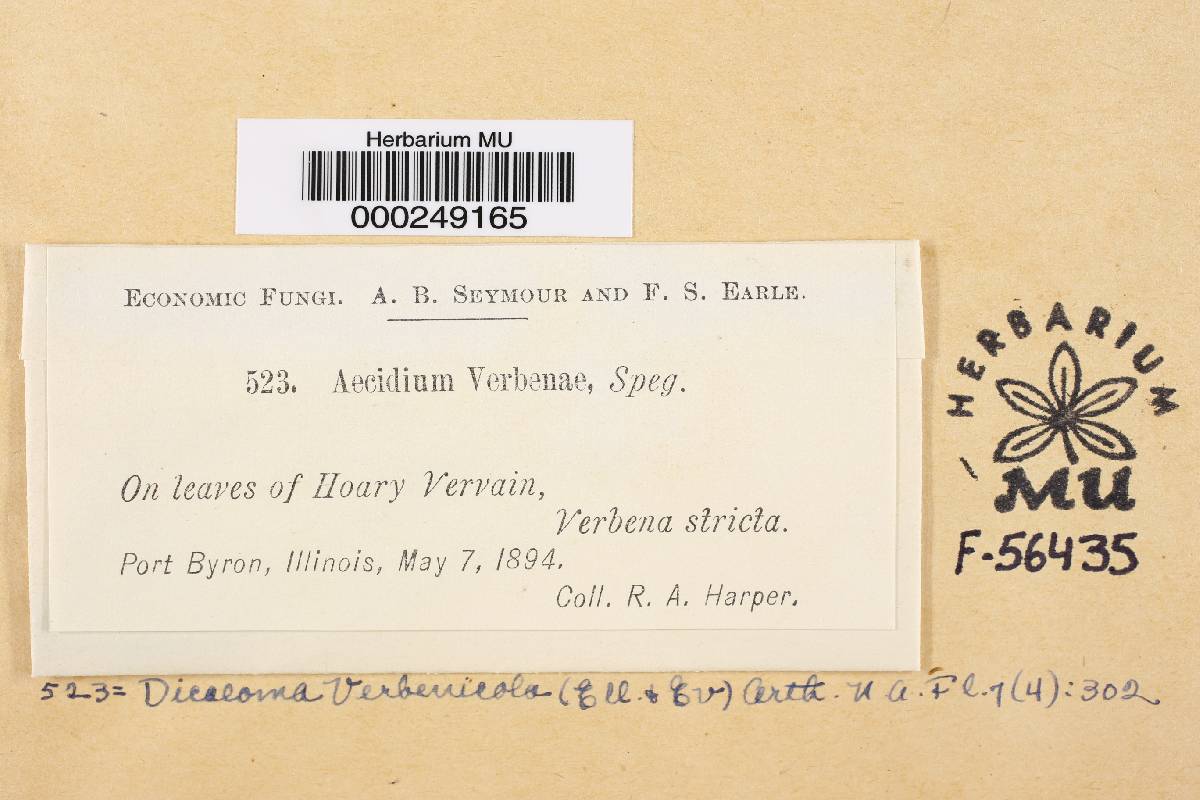 Herbarium MU
000249165
ECONOMIC FUNGI. A. B. SEYMOUR AND F. S. EARLE.
523. Aecidium Verbenae, Speg.
On leaves of Hoary Vervain,
Verbena stricta.
Port Byron, Illinois, May 7, 1894.
Coll. R. A. Harper.
HERBARIUM
MU
F-56435
523= Dicaeoma Verbenicola (Ell. & Ev) Arth. N. A. Fl. 7(4):302